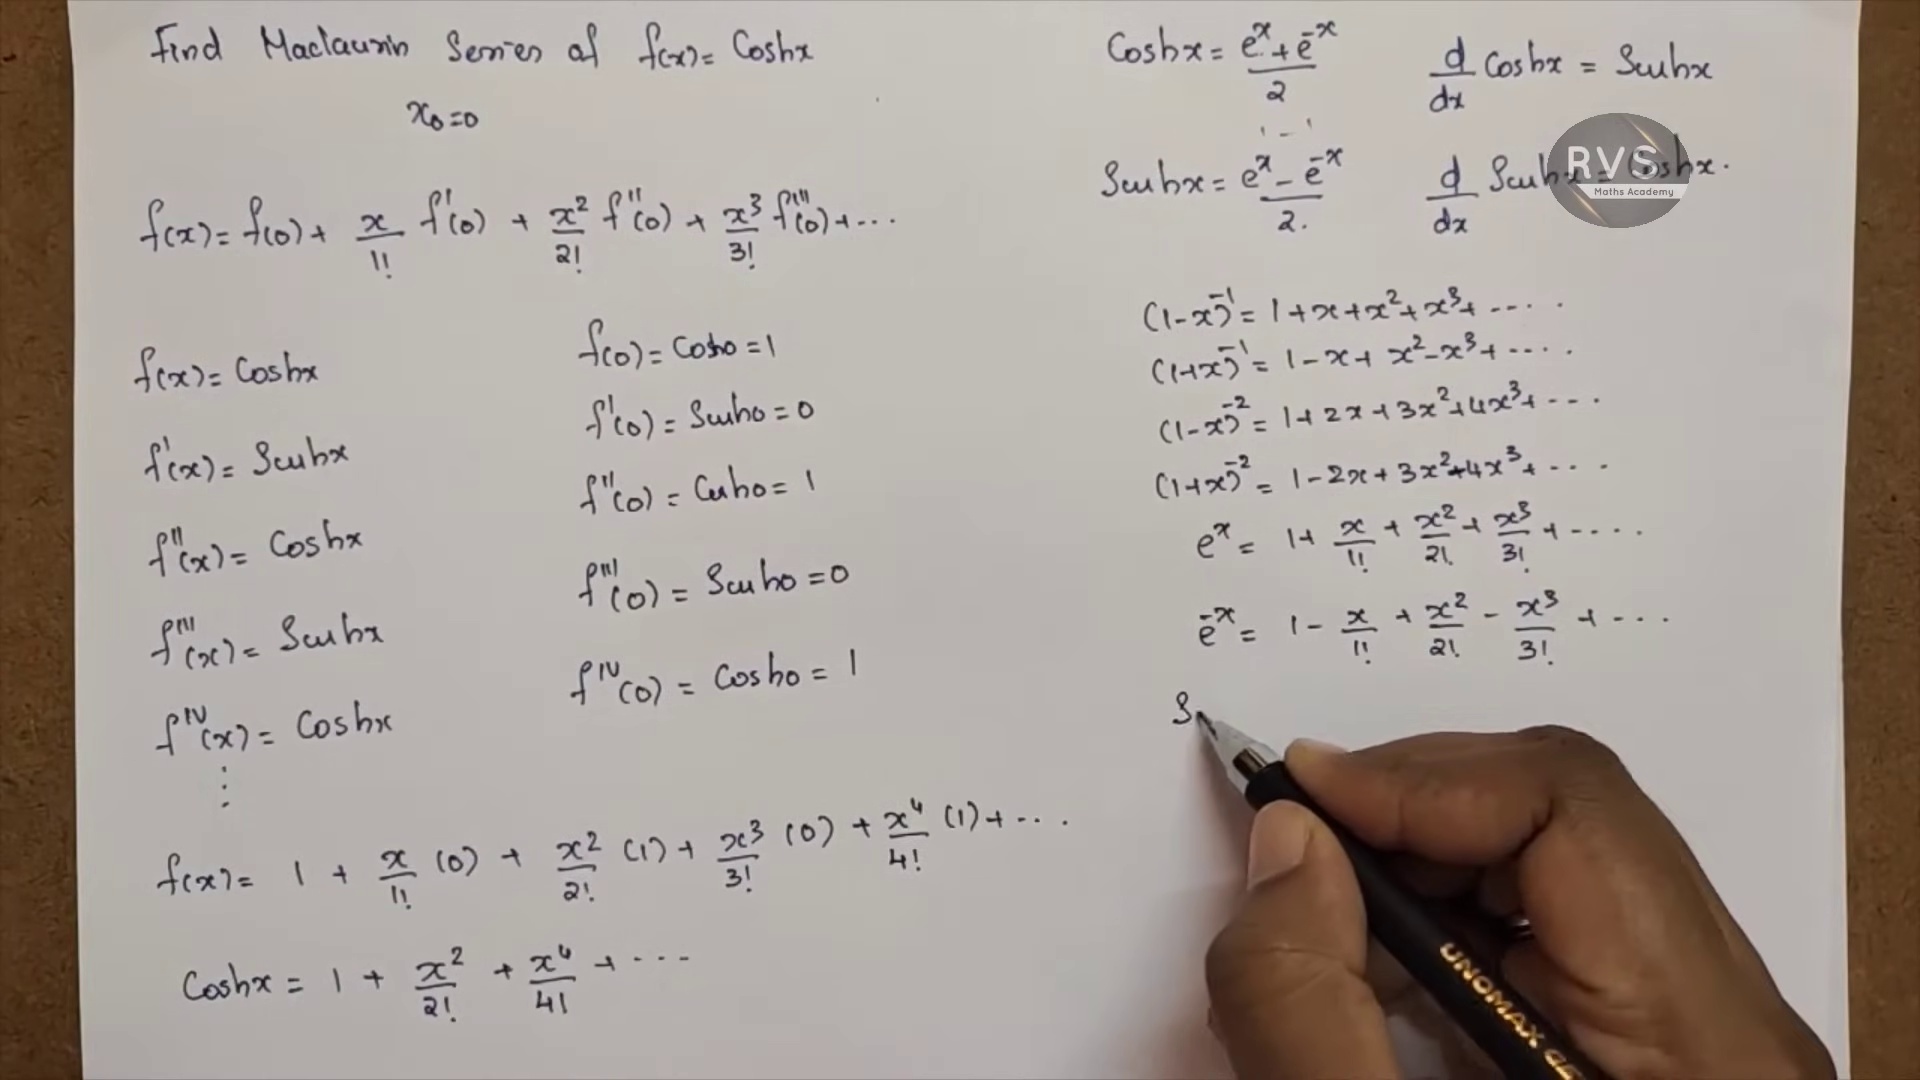 Find Maclaurin Series of f(x) = Coshx
x₀=0
f(x) = f(0) + x/1! f'(0) + x²/2! f''(0) + x³/3! f'''(0) + ...
f(x) = Coshx
f'(x) = Sinhx
f''(x) = Coshx
f'''(x) = Sinhx
f^IV(x) = Coshx
⋮
f(0) = Cosh0 = 1
f'(0) = Sinh0 = 0
f''(0) = Cosh0 = 1
f'''(0) = Sinh0 = 0
f^IV(0) = Cosh0 = 1
f(x) = 1 + x/1! (0) + x²/2! (1) + x³/3! (0) + x⁴/4! (1) + ...
Coshx = 1 + x²/2! + x⁴/4! + ...
Coshx = (e^x + e^-x)/2
d/dx Coshx = Sinhx
Sinhx = (e^x - e^-x)/2.
d/dx Sinhx = Coshx.
RVS
Maths Academy
(1-x)^-1 = 1 + x + x² + x³ + ....
(1+x)^-1 = 1 - x + x² - x³ + ....
(1-x)^-2 = 1 + 2x + 3x² + 4x³ + ...
(1+x)^-2 = 1 - 2x + 3x² - 4x³ + ...
e^x = 1 + x/1! + x²/2! + x³/3! + ....
e^-x = 1 - x/1! + x²/2! - x³/3! + ...
S
UNOMAX